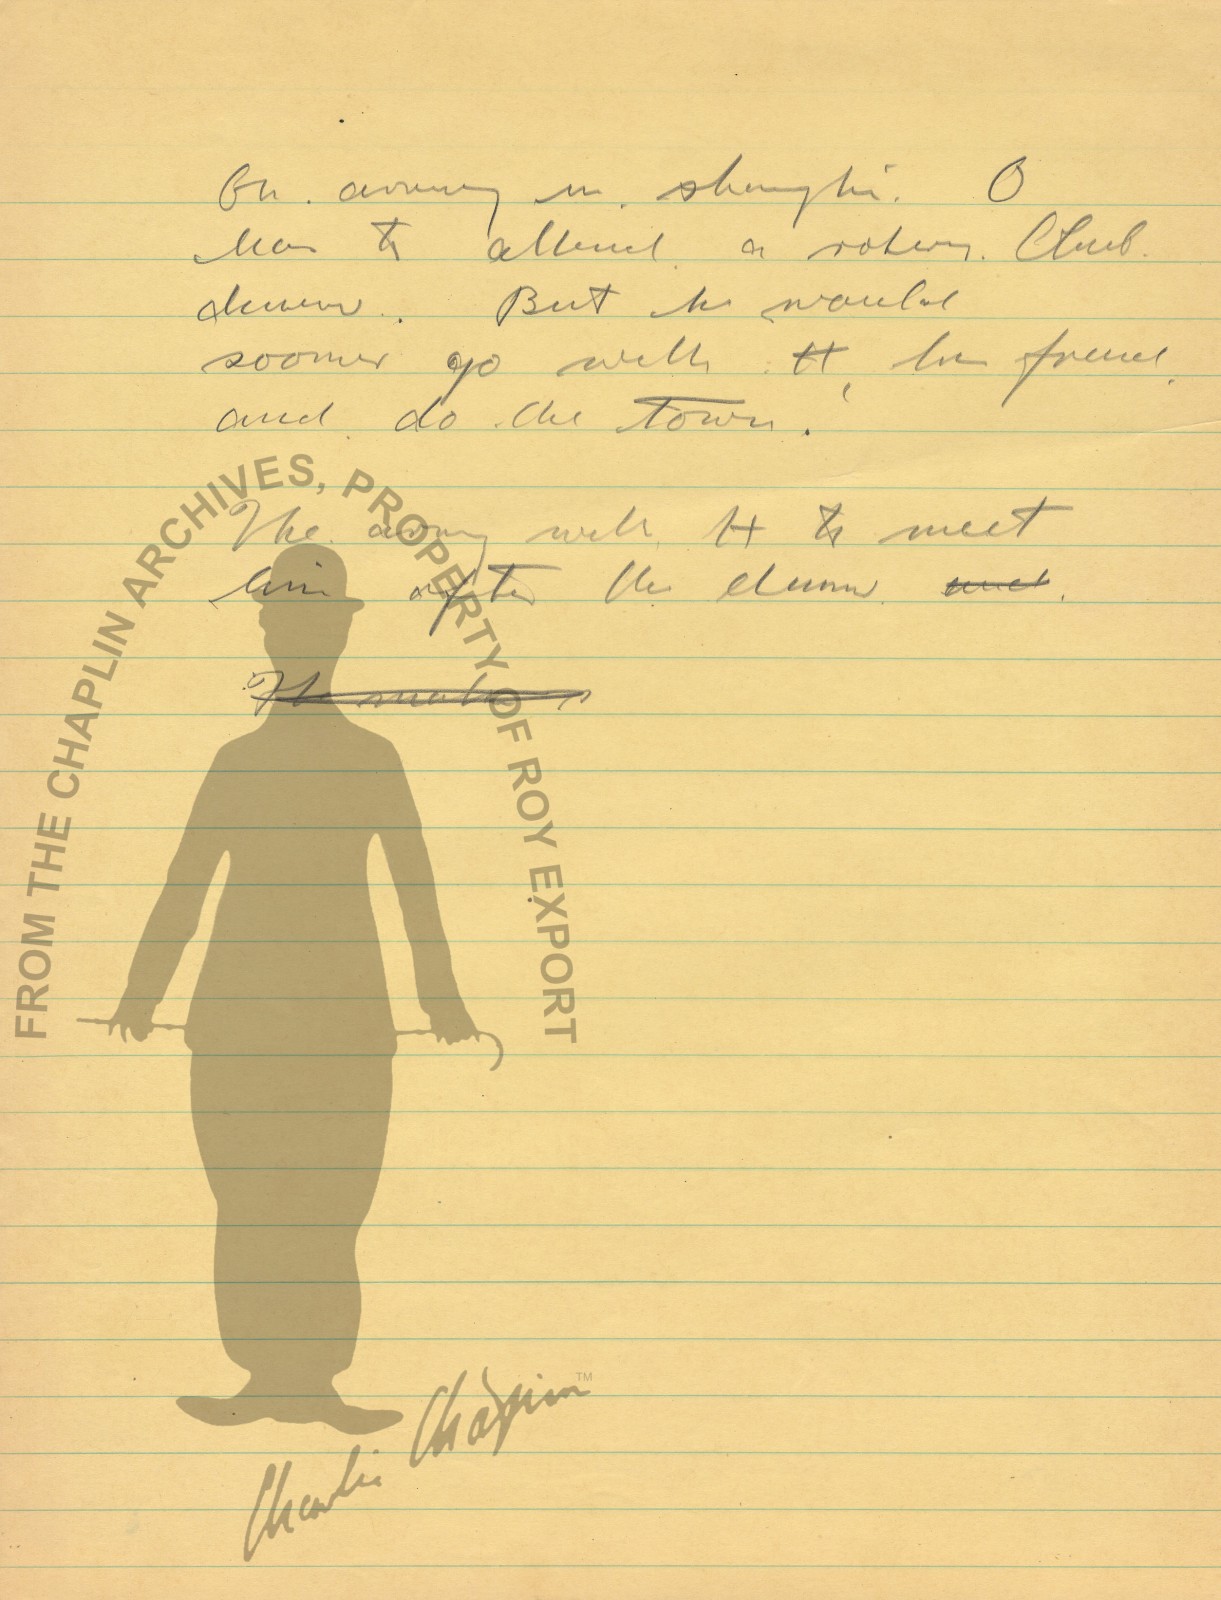 On arriving in shanghi. O
has to attend a rotary. Club.
dinner. But he would
sooner go with H, his friend,
and do the town.
The arrang with H to meet
him after the dinner and.
The
FROM THE CHAPLIN ARCHIVES, PROPERTY OF ROY EXPORT
Charlie Chaplin TM